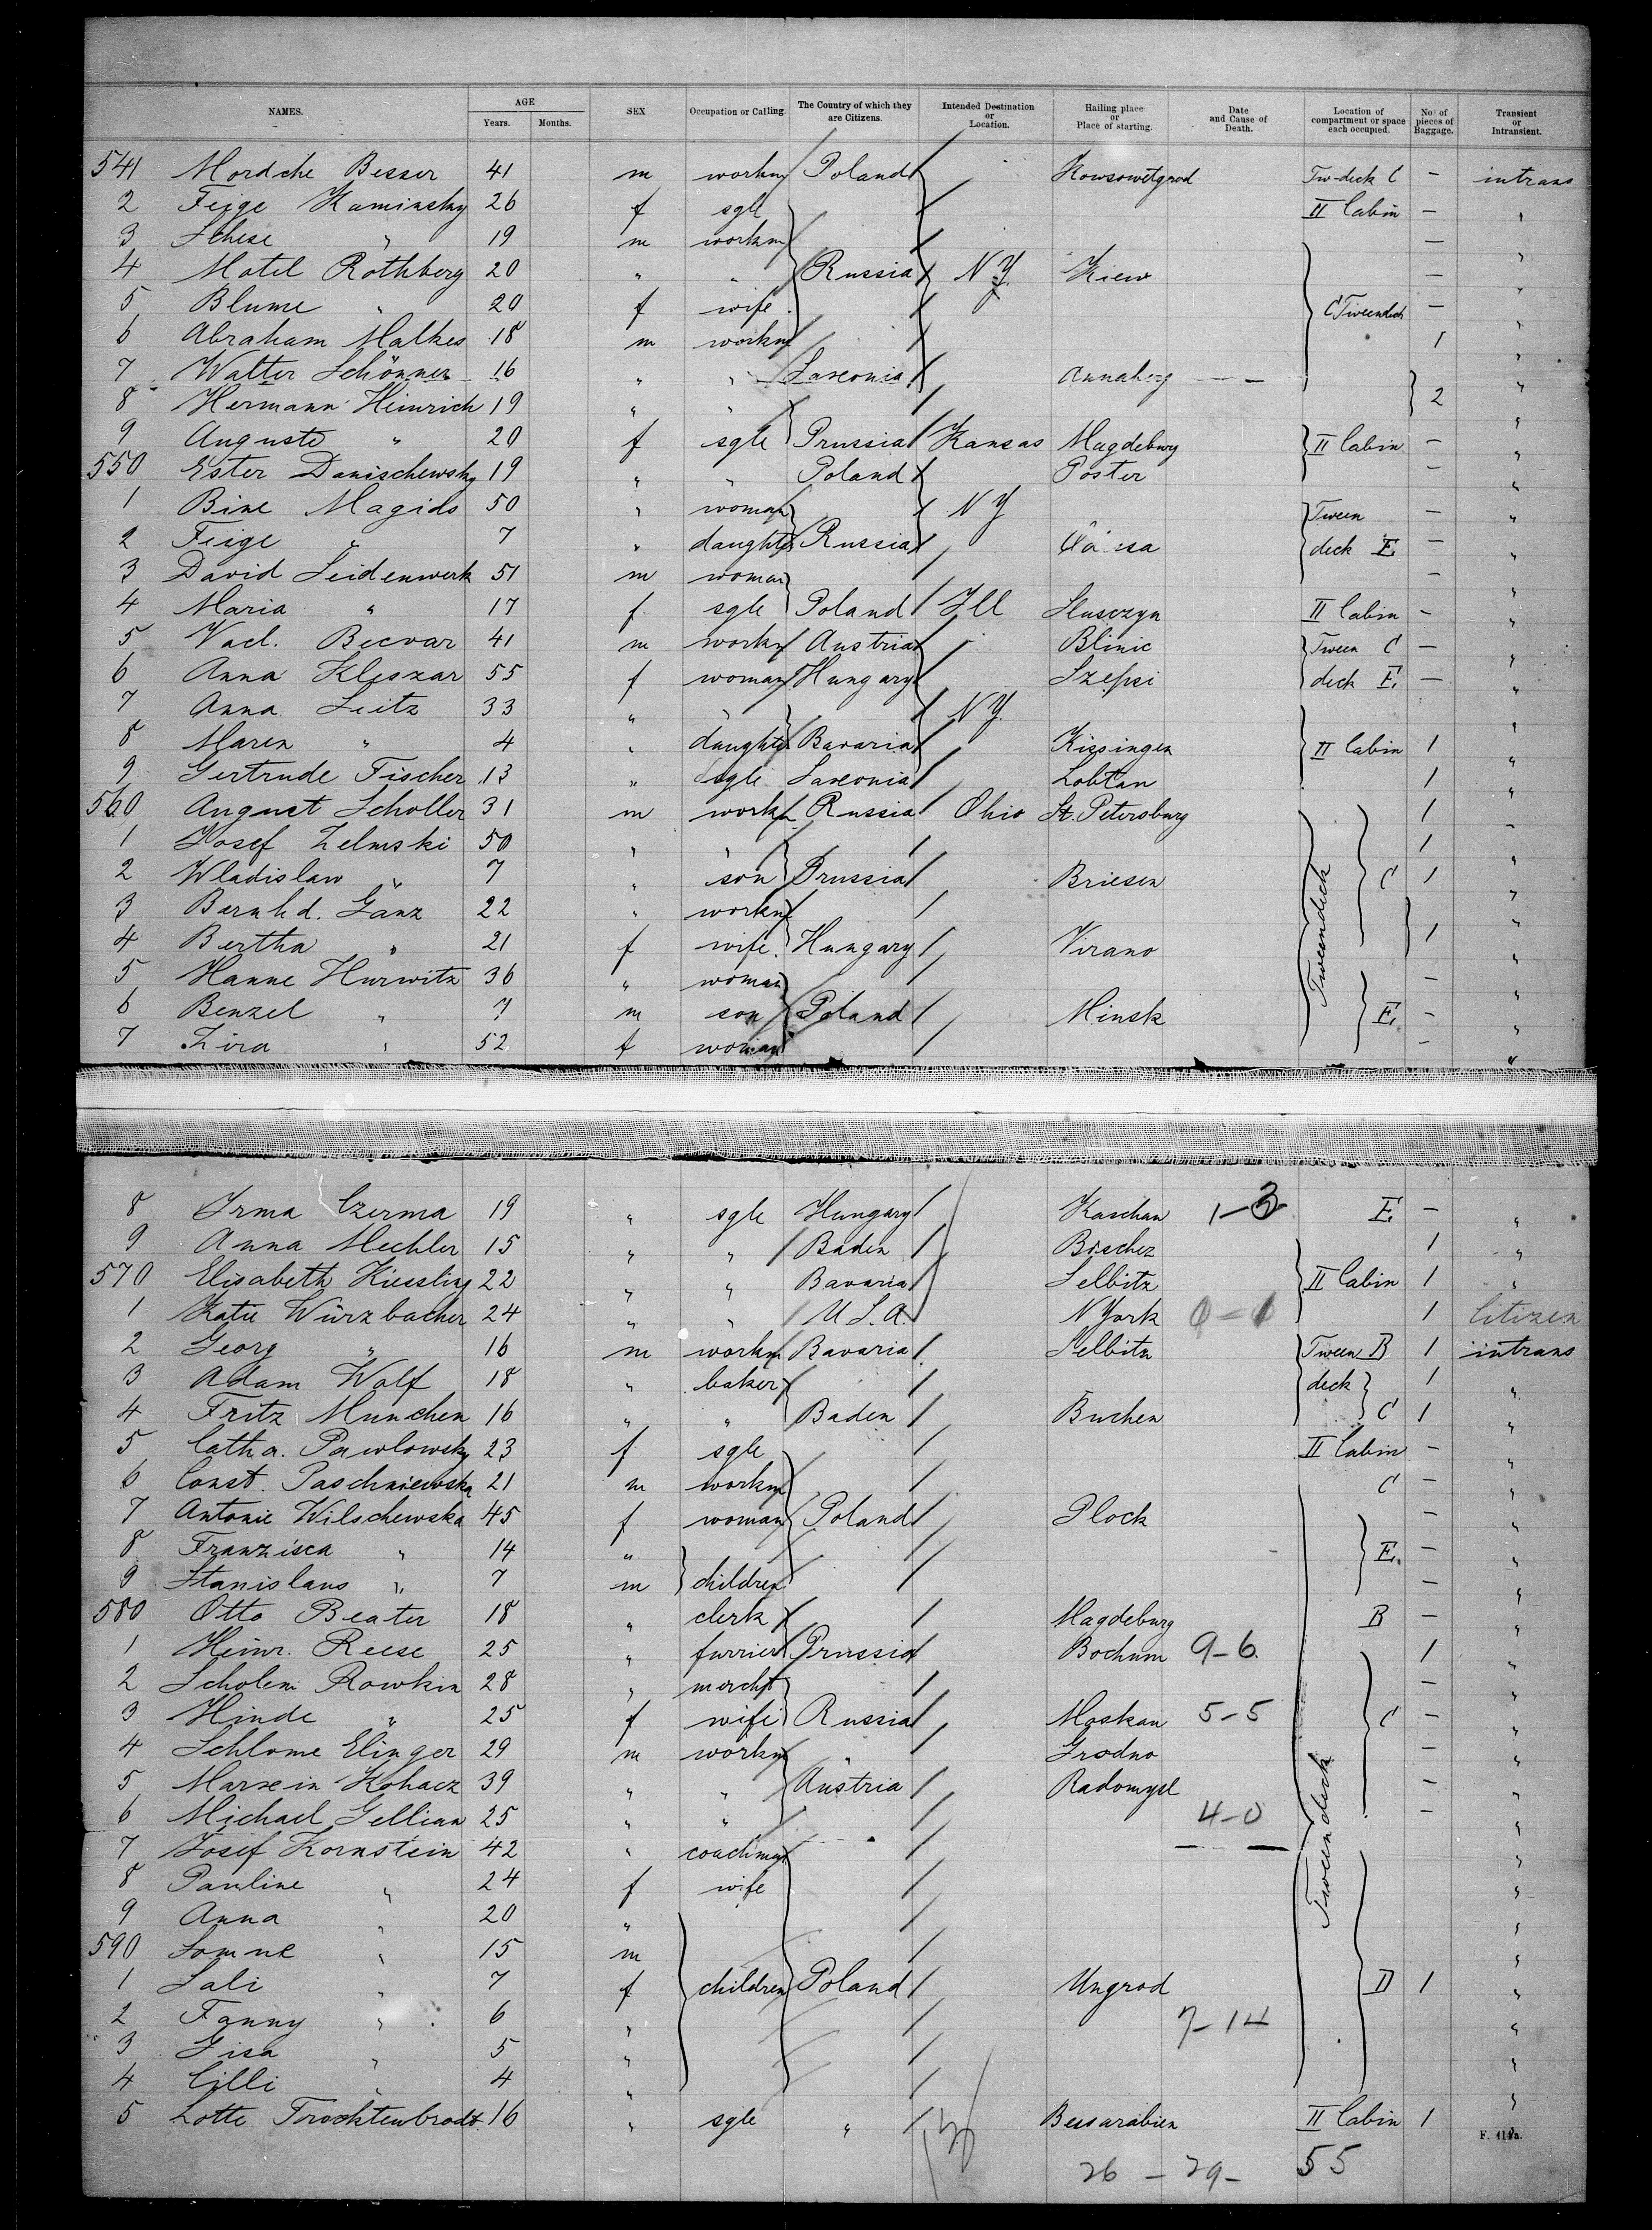 NAMES. AGE SEX Occupation or Calling. The Country of which they are Citizens. Intended Destination or Location. Hailing place or Place of starting. Date and Cause of Death. Location of compartment or space each occupied. No. of pieces of Baggage. Transient or Intransient.
Years. Months.
541 Mordche Besser 41 m workm Poland Kowsowetgrod Tw-deck C — intrans
2 Feige Kaminsky 26 f sgle II Cabin — "
3 Schese " 19 m workm — "
4 Motel Rothberg 20 " " Russia N Y Kiew — "
5 Blume " 20 f wife C Tweendeck — "
6 Abraham Malkes 18 m workm 1 "
7 Walter Schönner 16 " " Saxonia Annaberg "
8 Hermann Heinrich 19 " " 2 "
9 Auguste " 20 f sgle Prussia Kansas Magdeburg II Cabin — "
550 Ester Danischewsky 19 " " Poland Poster — "
1 Bine Magids 50 " woman N Y Tween — "
2 Feige " 7 " daughter Russia deck E. — "
3 David Seidenwerk 51 m woman — "
4 Maria " 17 f sgle Poland Ill Slusczyn II Cabin — "
5 Vacl. Becvar 41 m workm Austria Blinic Tween C — "
6 Anna Kleszar 55 f woman Hungary Szepsi deck E. — "
7 Anna Seitz 33 " " N Y. "
8 Maren " 4 " daughter Bavaria Kissingen II Cabin 1 "
9 Gertrude Fischer 13 " sgle Saxonia Lobtau 1 "
560 August Scholler 31 m workm Russia Ohio St. Petersburg 1 "
1 Josef Zelmski 50 " " 1 "
2 Wladislaw " 7 " son Prussia Briesen C 1 "
3 Bernhd. Ganz 22 " workm "
4 Bertha " 21 f wife. Hungary Virano 1 "
5 Hanne Hurwitz 36 " woman — "
6 Benzel " 7 m son Poland Minsk Tweendeck E. — "
7 Zira " 52 f woman — "
8 Irma Czerma 19 " sgle Hungary Kaschau 1-3 E. — "
9 Anna Mechler 15 " " Baden 1 "
570 Elisabeth Kiessling 22 " " Bavaria Selbitz II Cabin 1 "
1 Katie Würzbacher 24 " " U.S.A. N York 1 Citizen
2 Georg " 16 m workm Bavaria Selbitz Tween B 1 intrans
3 Adam Wolf 18 " baker deck 1 "
4 Fritz Munchen 16 " " Baden Buchen C 1 "
5 Catha. Pawlowsky 23 f sgle II Cabin — "
6 Const. Paschniewska 21 m workm C — "
7 Antonie Wilschewska 45 f woman Poland Plock — "
8 Franzisca " 14 " E. — "
9 Stanislaus " 7 m children — "
580 Otto Beater 18 " clerk Magdeburg B — "
1 Heinr. Reese 25 " furrier Prussia Bochum 9-6. 1 "
2 Scholem Rowkin 28 " mercht — "
3 Hinde " 25 f wife Russia Moskau 5-5 C — "
4 Schlome Elinger 29 m workm " Grodno — "
5 Marxein Kohacz 39 " " Austria Radomysl — "
6 Michael Gellian 25 " " 4-0 — "
7 Josef Kornstein 42 " coachman "
8 Pauline " 24 f wife Tweendeck "
9 Anna " 20 " "
590 " 15 m "
1 Sali " 7 f children Poland Ungrod D 1 "
2 Fanny " 6 " 7-14 "
3 Gisa " 5 " "
4 Cilli " 4 " "
5 Lotte Trochtenbrodt 16 " sgle " Bessarabien II Cabin 1 "
26 - 29 - 55